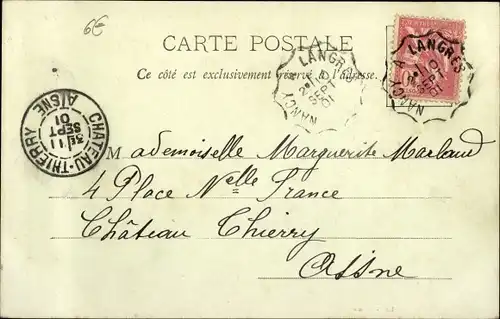 6€
CARTE POSTALE
Ce côté est exclusivement réservé à l'adresse.
LANGRES A NANCY
10
SEPT
01
LANGRES A NANCY
10
SEPT
01
CHATEAU-THIERRY
11
SEPT
01
AISNE
Mademoiselle Marguerite Marland
4 Place Nelle France
Château Thierry
Aisne